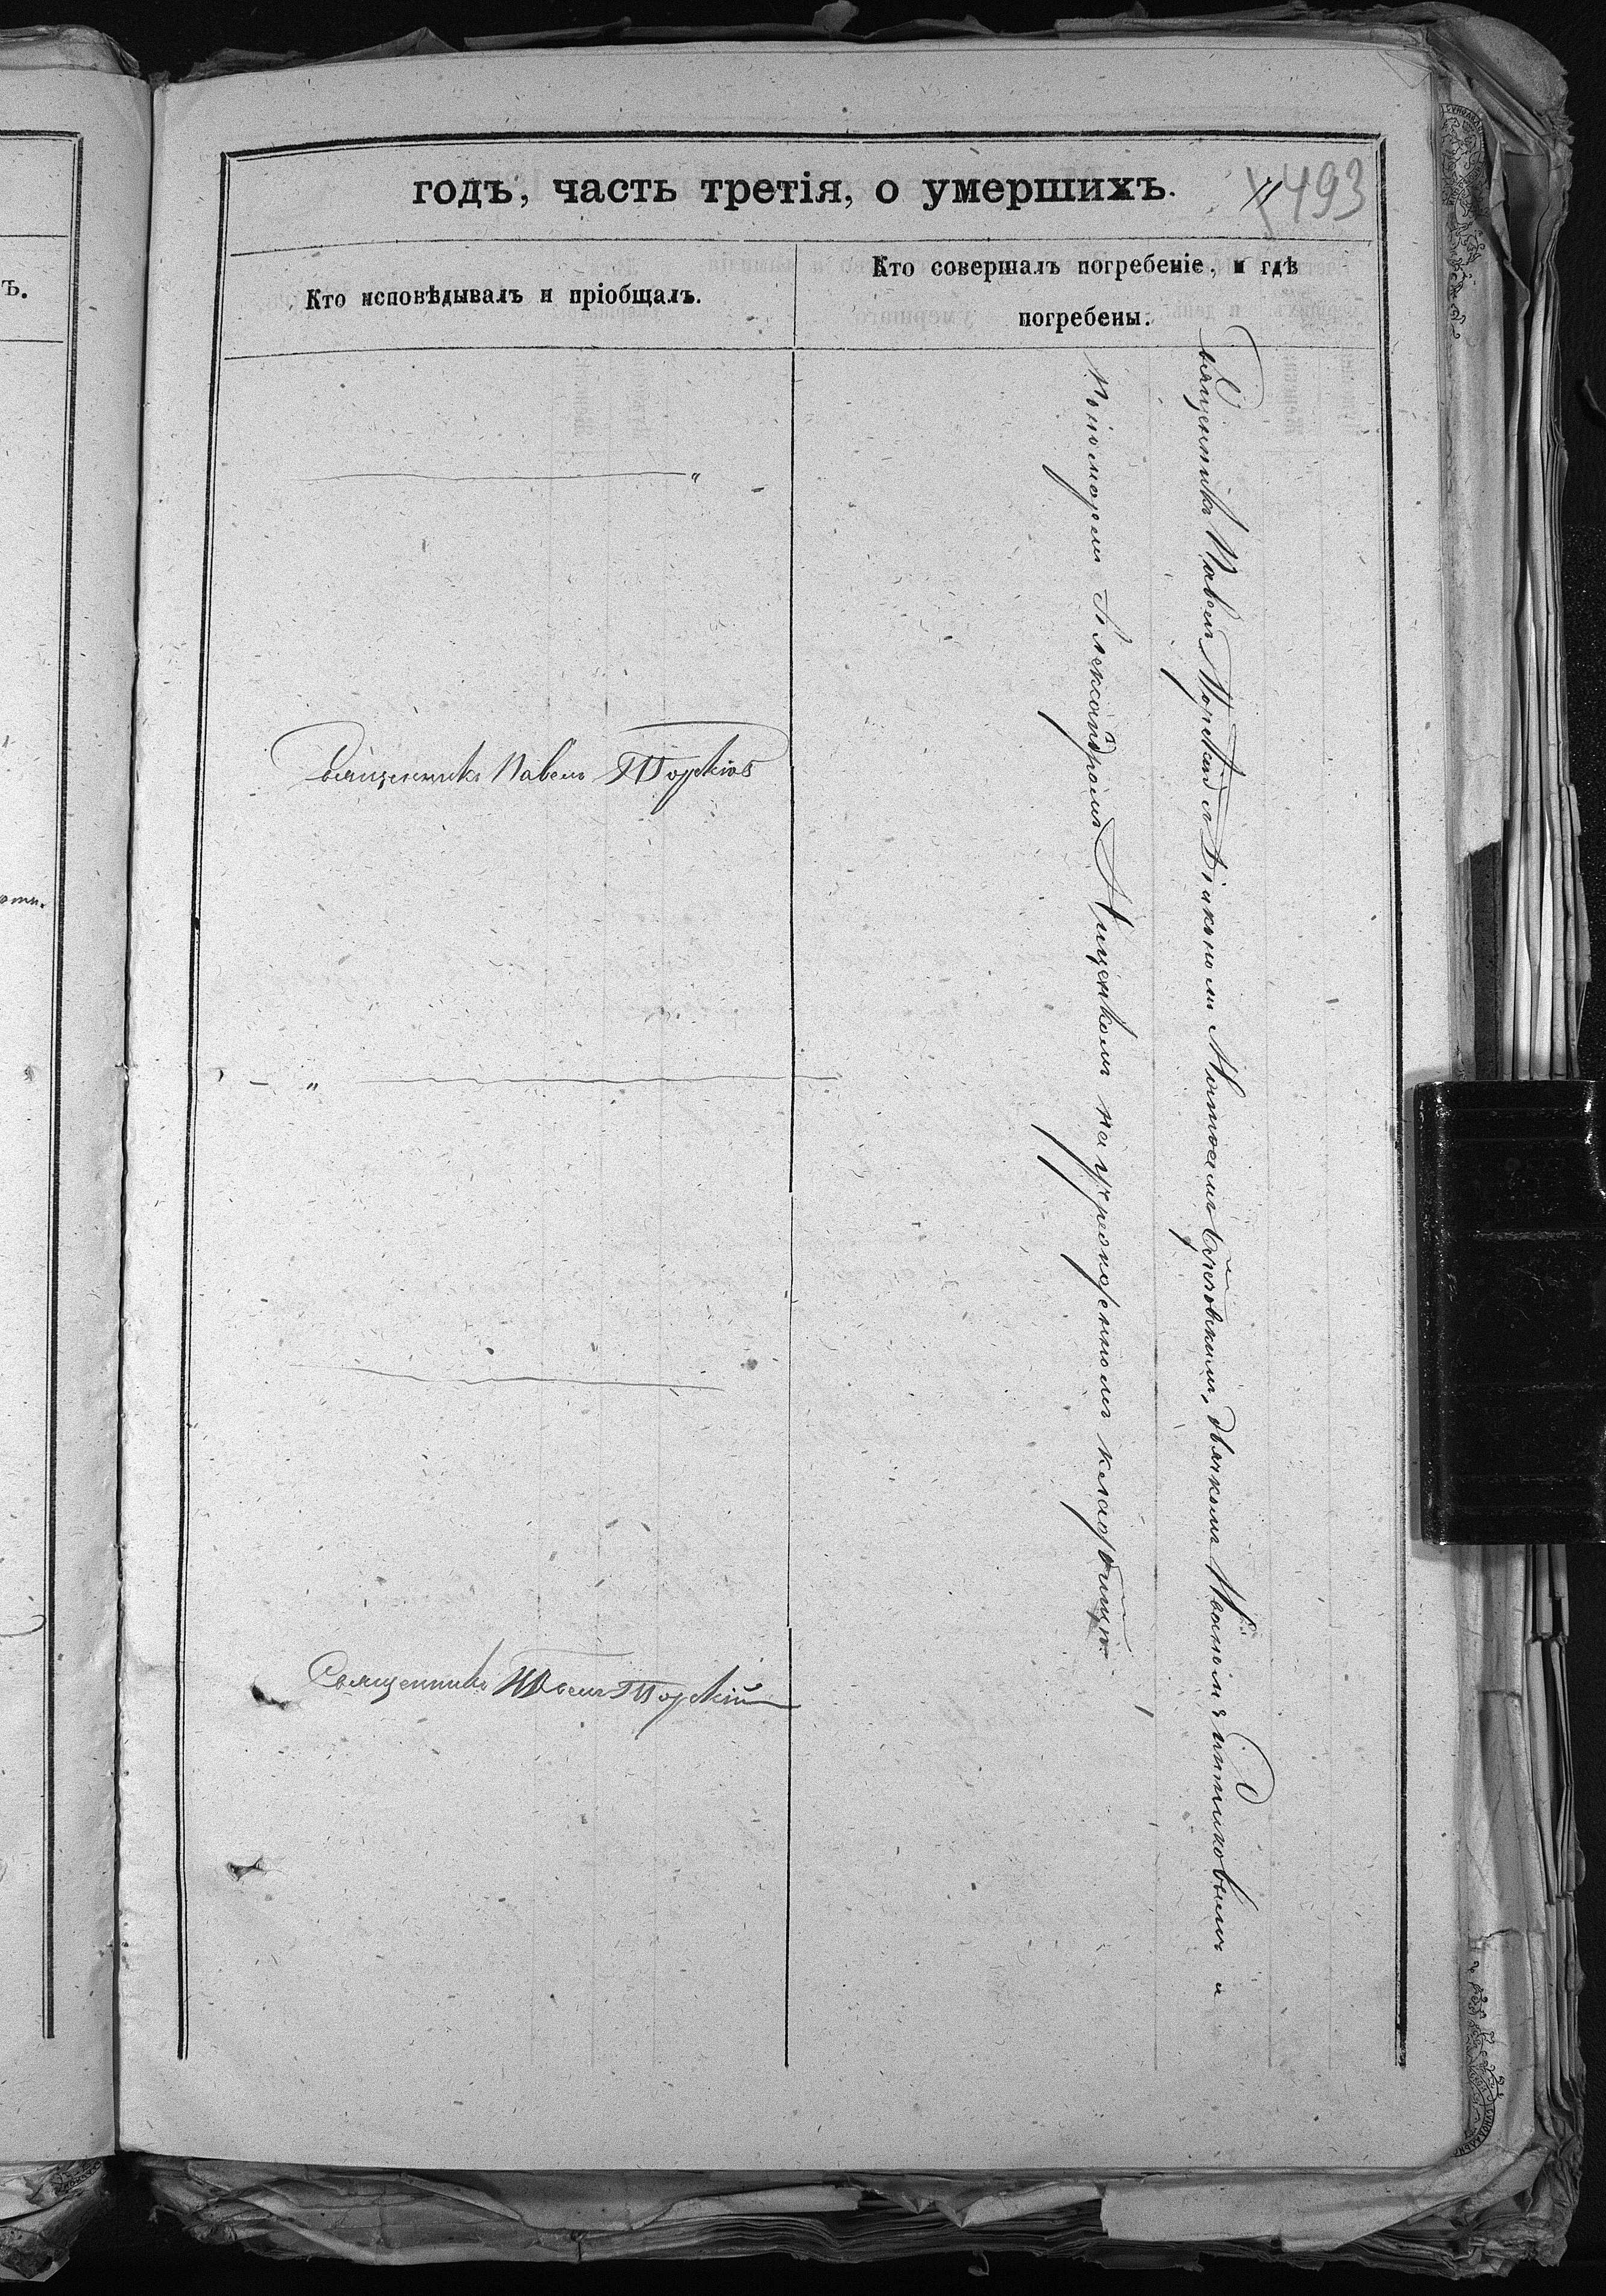 годъ, часть третія, о умершихъ.
493
Кто исповѣдывалъ и пріобщалъ.
Кто совершалъ погребеніе, и гдѣ
погребены.
Священникъ Павелъ Торскій
Священникъ Павелъ Торскій
Священникъ Павелъ Торскій съ Діакономъ дьячкомъ Иваномъ и
Пономаремъ Александромъ на учрежденномъ кладбищѣ
ъ.